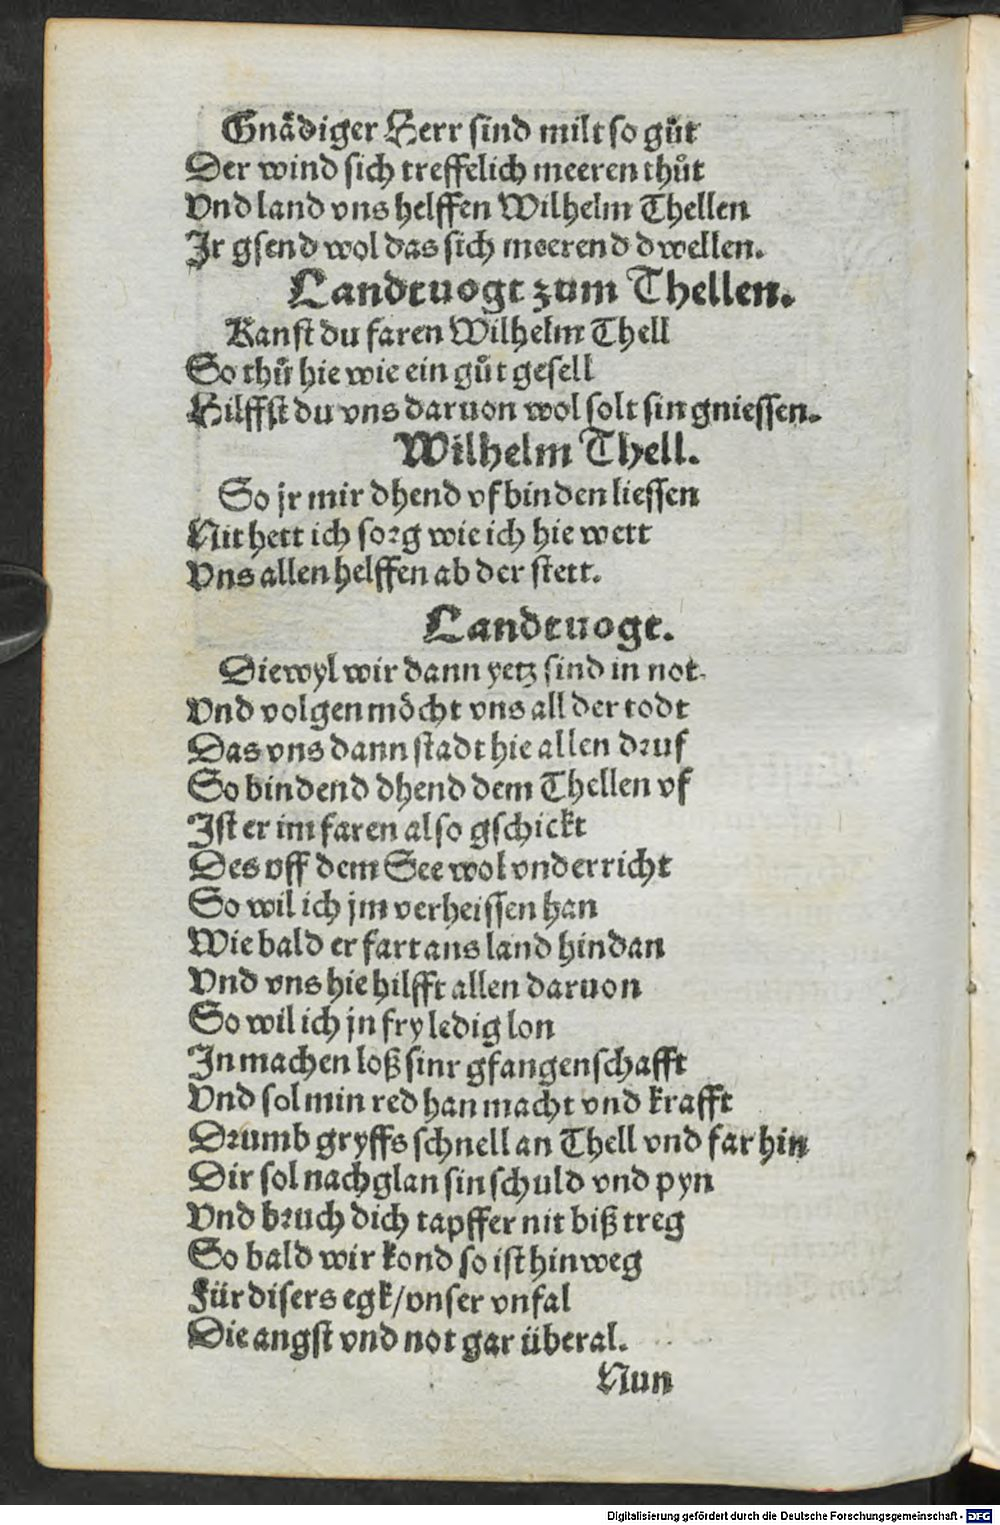 Gnådiger Herr sind milt so gůt
Der wind sich treffelich meeren thůt
Vnd land vns helffen Wilhelm Thellen
Ir gsend wol das sich meerend dwellen.
Landtuogt zum Thellen.
Kanst du faren Wilhelm Thell
So thů hie wie ein gůt gesell
Hilffst du vns daruon wol solt sin gniessen.
Wilhelm Thell.
So jr mir dhend vfbinden liessen
Nit hett ich sorg wie ich hie wett
Vns allen helffen ab der stett.
Landtuogt.
Diewyl wir dann yetz sind in not.
Vnd volgen möcht vns all der todt
Das vns dann stadt hie allen druf
So bindend dhend dem Thellen vf
Ist er im faren also gschickt
Des vff dem See wol vnderricht
So wil ich jm verheissen han
Wie bald er fart ans land hindan
Vnd vns hie hilfft allen daruon
So wil ich jn fry ledig lon
In machen loß sinr gfangenschafft
Vnd sol min red han macht vnd krafft
Drumb gryffs schnell an Thell vnd far hin
Dir sol nachglan sin schuld vnd pyn
Vnd bruch dich tapffer nit biß treg
So bald wir kond so ist hinweg
Für disers egk/vnser vnfal
Die angst vnd not gar überal.
Nun
Digitalisierung gefördert durch die Deutsche Forschungsgemeinschaft - DFG